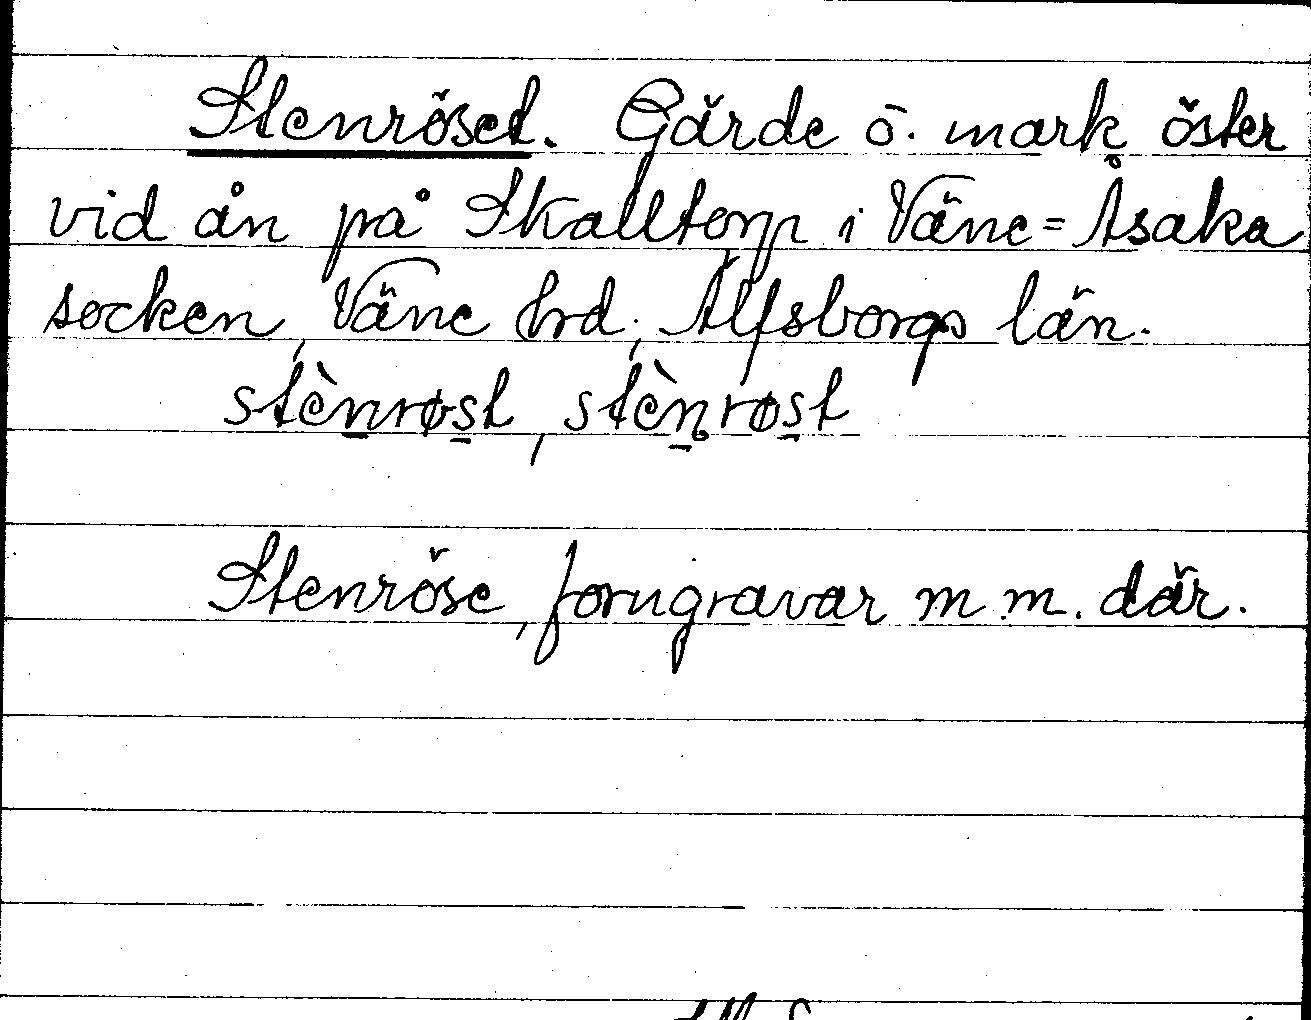 Stenröset. Gärde o. mark öster
vid ån på Skalltorp i Väne=Åsaka
socken, Väne hrd, Älfsborgs län.
stènrøst, stènrøst
Stenröse, forngravar m.m. där.